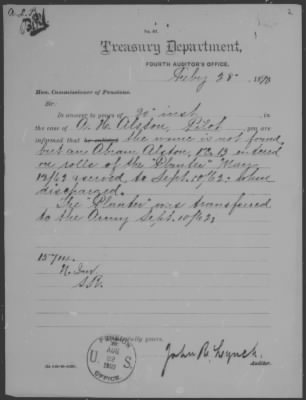 Treasury Department,
FOURTH AUDITOR'S OFFICE,
Feby 28" 1893
Hon. Commissioner of Pensions.
Sir:
In answer to yours of 20" inst, in
the case of A. N. Alston, Pilot you are
informed that the name is not found,
but an Abram Alston, No. 13 is
on rolls of the "Planter" May
13/62 & served to Sept. 10/62 when
discharged.
The "Planter" was transferred
to the Army Sept. 10/62.
N. Div
PENSION
AUG
U S
OFFICE
Respectfully yours,
John R. Lynch
Auditor.